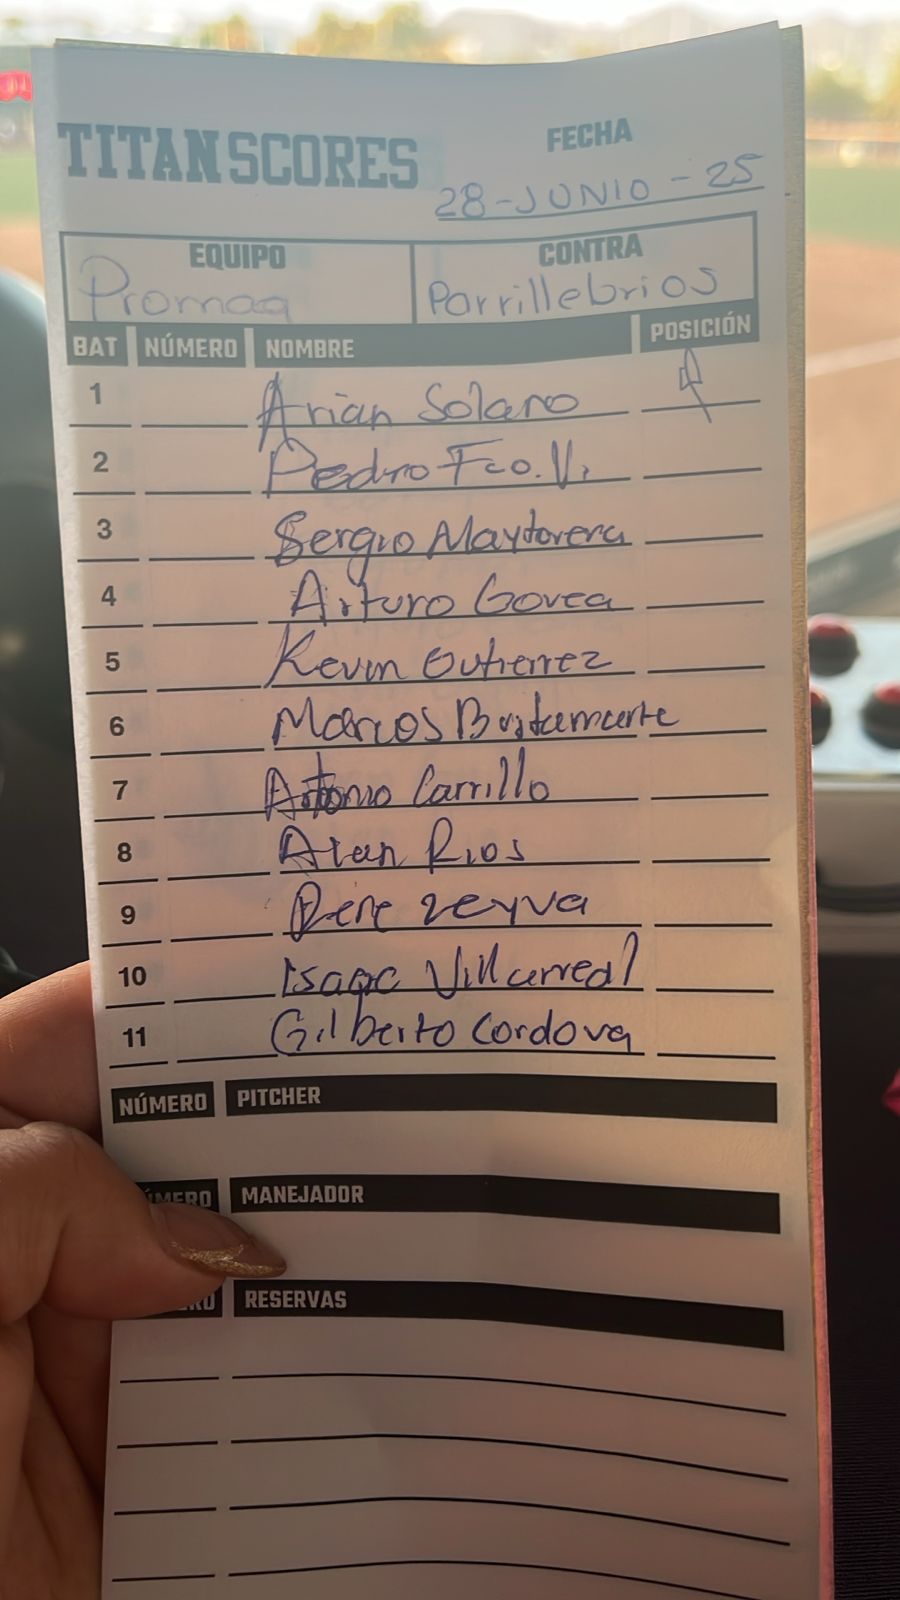 TITAN SCORES
FECHA
28-JUNIO-25
EQUIPO CONTRA
Promaq Parrillebrios
BAT NÚMERO NOMBRE POSICIÓN
1 Arian Solano
2 Pedro Fco. V.
3 Sergio Maytorena
4 Arturo Govea
5 Kevin Gutierrez
6 Marcos Bustamante
7 Antonio Carrillo
8 Alan Rios
9 Rene Leyva
10 Isaac Villarreal
11 Gilberto Cordova
NÚMERO PITCHER
NÚMERO MANEJADOR
RESERVAS